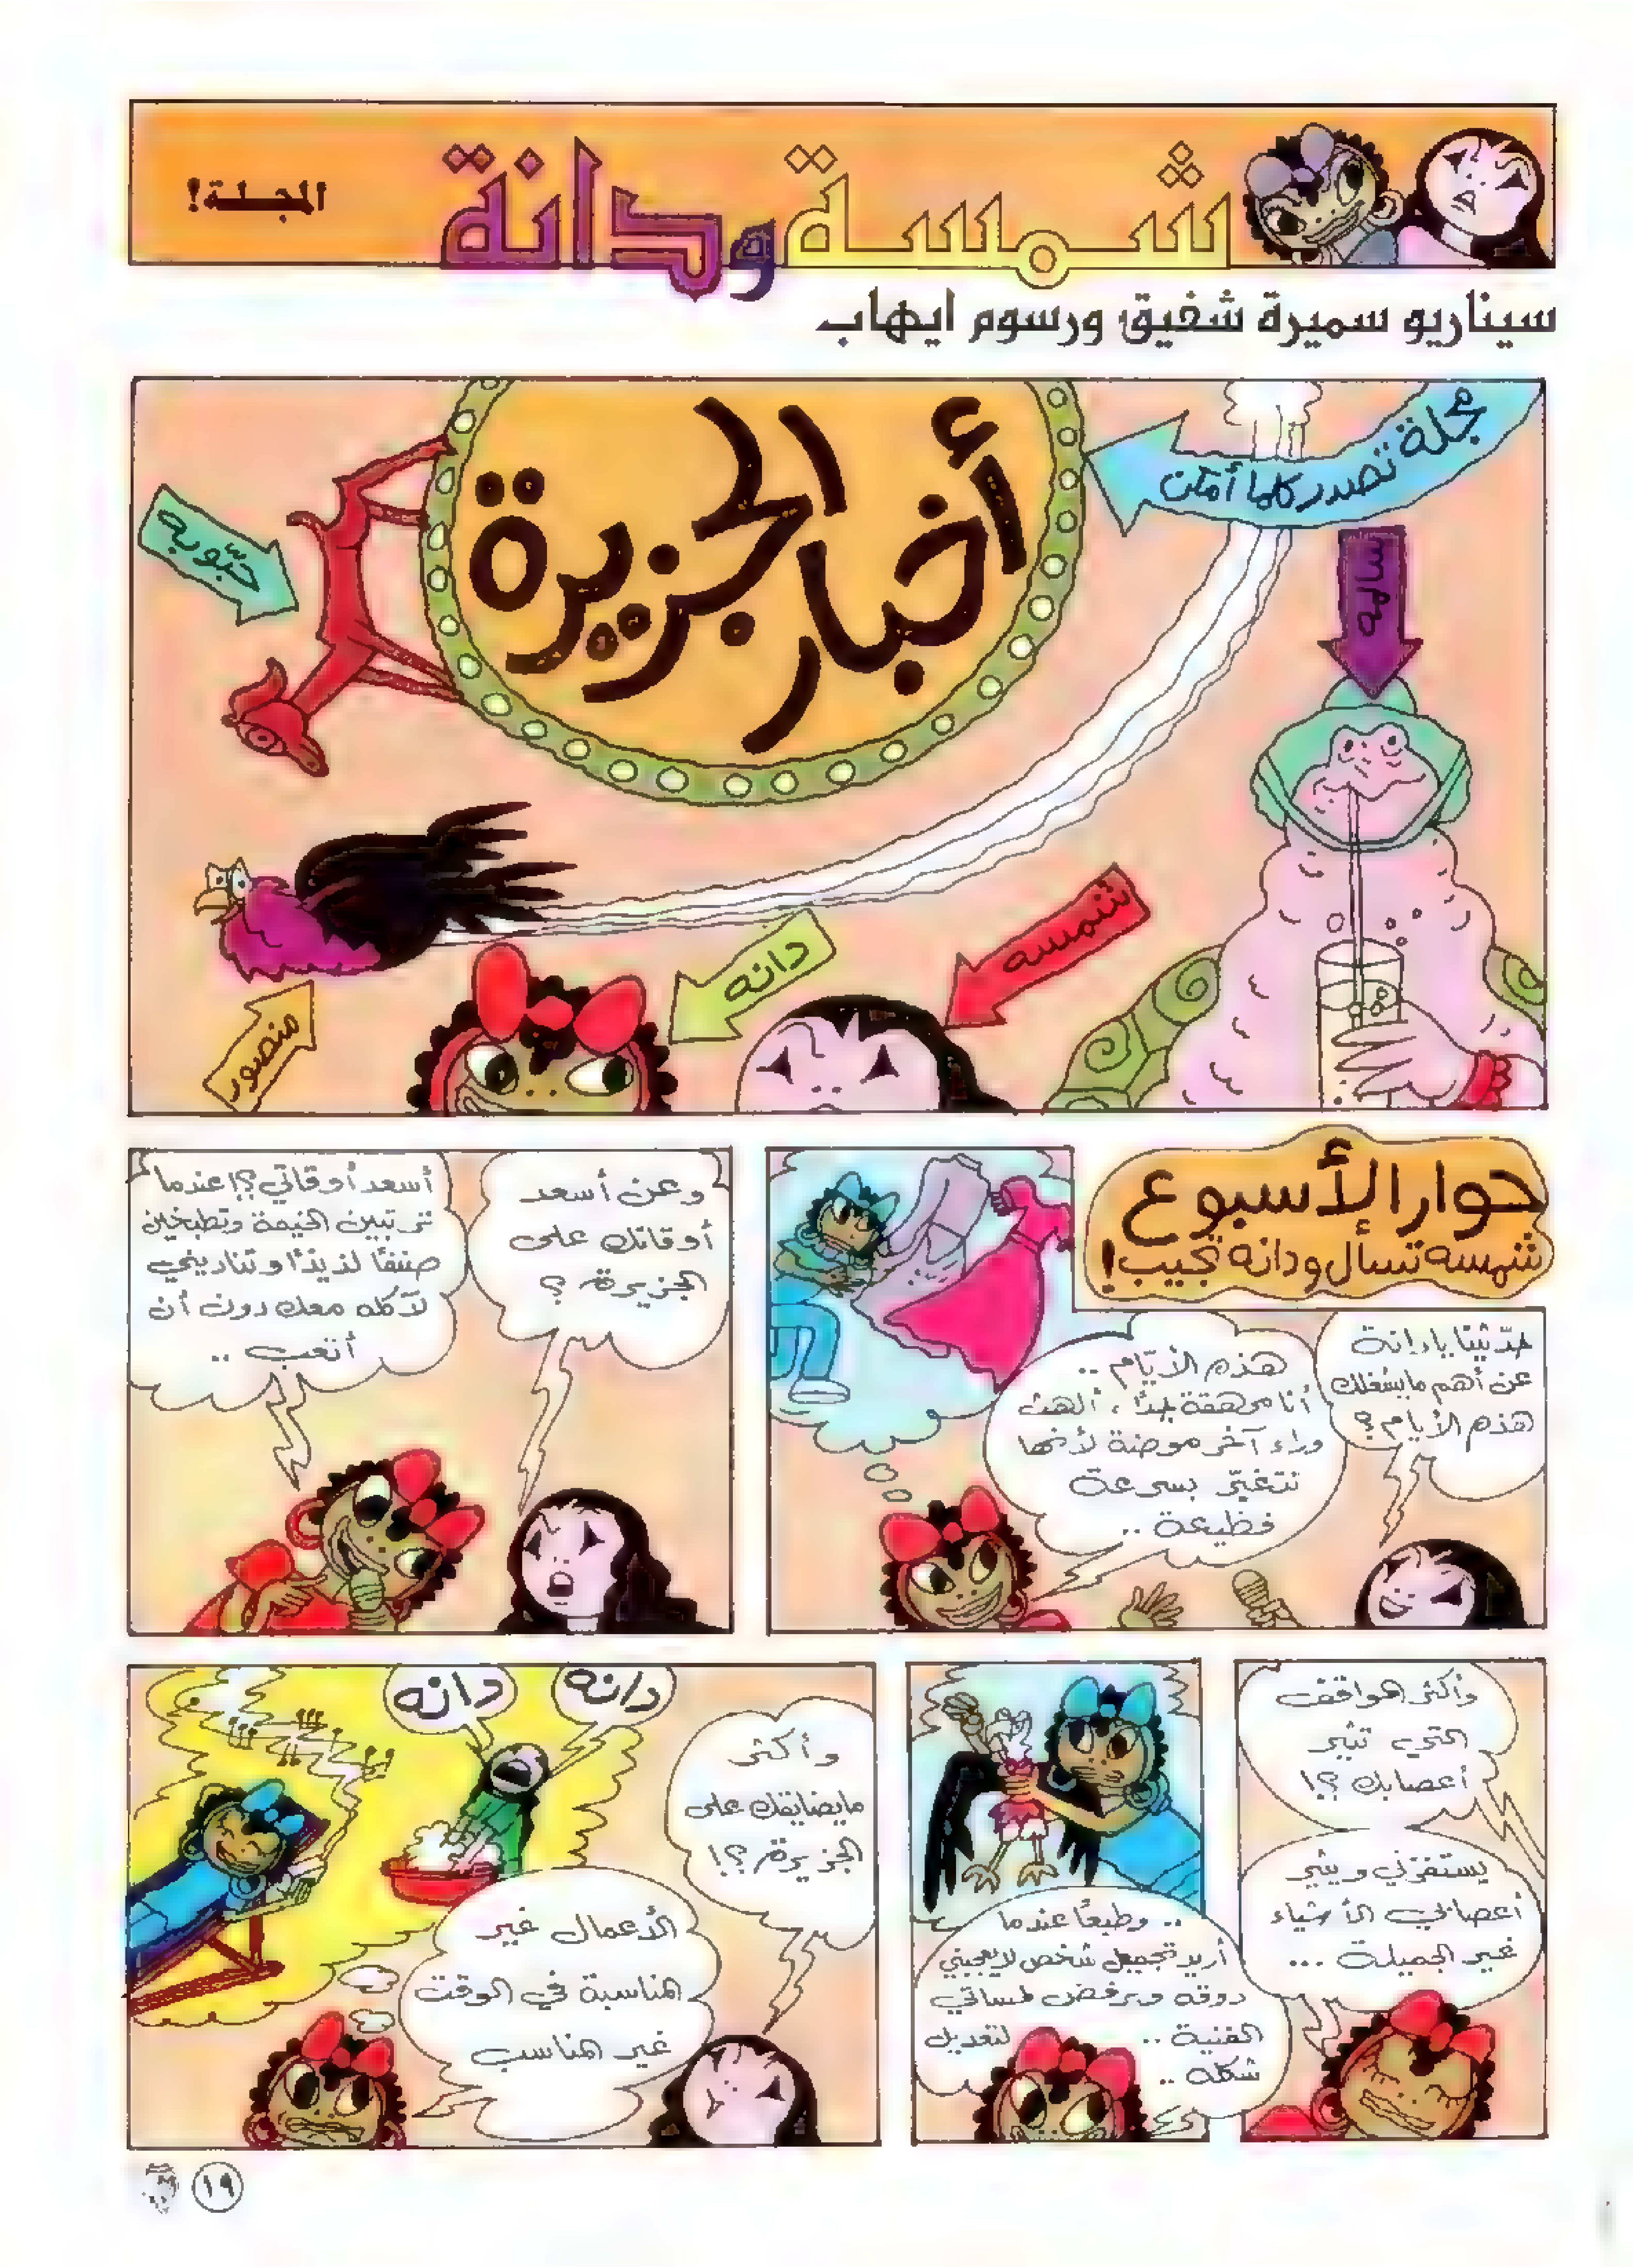 شمسة ودانة
المجلة!
سيناريو سميرة شفيق ورسوم ايهاب
مجلة تصدر كلما أمكن
أخبار الجزيرة
حبّوبه
سالمه
شمسه
دانه
منصور
حوار الأسبوع
شمسه تسأل ودانه تجيب!
حدّثينا يا دانة
عن أهم ما يشغلك
هذه الأيام؟
هذه الأيّام ..
أنا مرهقة جدًا، ألهث
وراء آخر موضة لأنها
تتغيّر بسرعة
فظيعة ..
وعن أسعد
أوقاتك على
الجزيرة؟
أسعد أوقاتي؟! عندما
ترتبين الخيمة وتطبخين
صنفًا لذيذًا وتناديني
لآكله معك دون أن
أتعب ..
وأكثر المواقف
التي تثير
أعصابك؟!
يستفزني ويثير
أعصابي الأشياء
غير الجميلة ...
.. وطبعًا عندما
أريد تجميل شخص لا يعجبني
ذوقه ويرفض لمساتي
الفنية .. لتعديل
شكله ..
وأكثر
ما يضايقك على
الجزيرة؟!
دانه
دانه
الأعمال غير
المناسبة في الوقت
غير المناسب
١٩